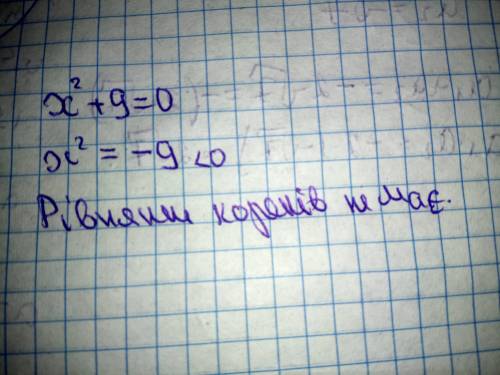 x² + 9 = 0
x² = -9 < 0
Рівняння коренів не має.